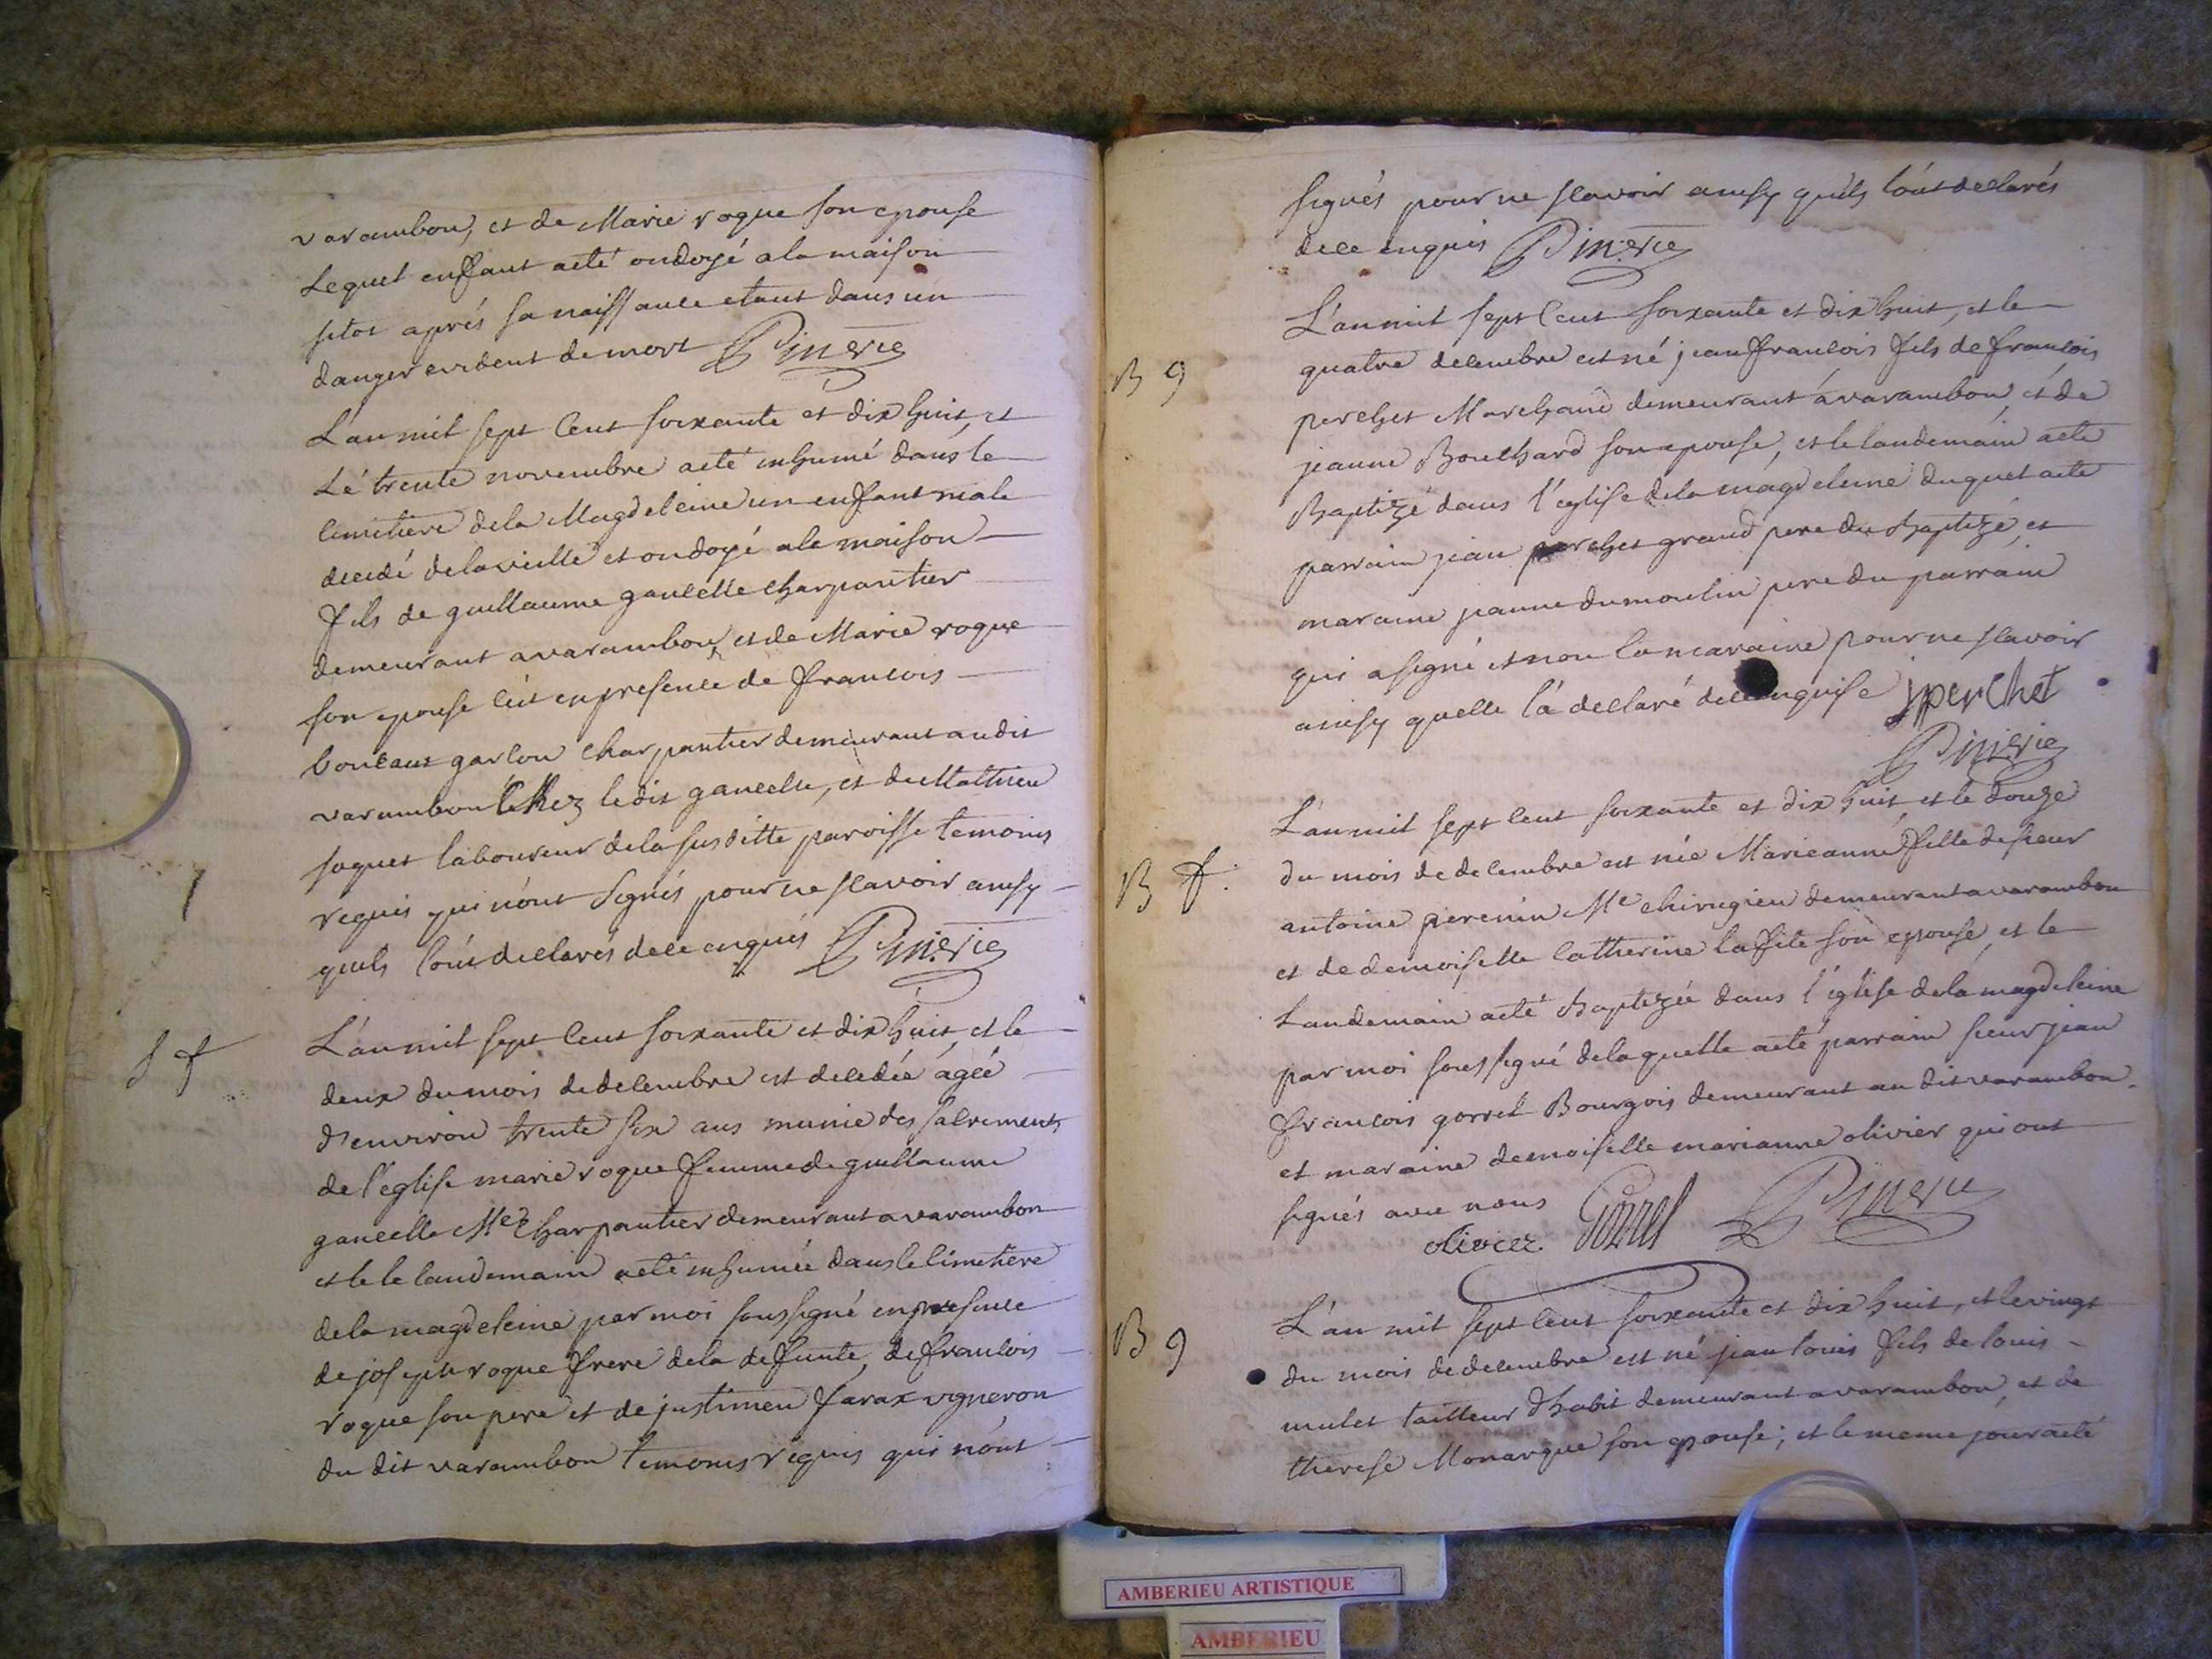 varambon, et de Marie roque son epouse
Lequel enffant aeté ondoyé a la maison
sitot aprés sa naissance etant dans un
danger evident de mort Pinerie
L'an mil sept cent soixante et dix huit, et
Lé trente novembre aeté inhumé dans le
cimetiere de la Magdeleine un enffant male
decedé de la veille et ondoyé a la maison
fils de guillaume gancelle charpantier
demeurant a varambon, et de Marie roque
son epouse c'eit en presence de francois
bonsaut garcon charpantier demeurant au dit
varambon chez le dit gancelle, et de Mathieu
soquet laboureur de la susditte paroisse temoins
requis qui n'ont signés pour ne scavoir ainsy
quils l'ont declarés de ce enquis Pinerie
S f
L'an mil sept cent soixante et dix huit, et le
deux du mois de decembre est decedée ágée
d'environ trente six ans munie des sacrements
de l'eglise marie roque femme de guillaume
gancelle Me charpantier demeurant a varambon
et le le landemain aeté inhumée dans le cimetiere
de la magdeleine par moi soussigné en presence
de joseph roque frere de la defunte, de francois
roque son pere et de justinien farax vigneron
du dit varambon temoins requis qui n'ont
signés pour ne scavoir ainsy quils l'ont declarés
de ce enquis Pinerie
B g
L'an mil sept cent soixante et dix huit, et le
quatre decembre est né jean francois fils de francois
perchet Marchand demeurant á varambon, et de
jeanne Bouchard son epouse, et le landemain aeté
Baptizé dans l'eglise de la magdeleine duquel aeté
parrain jean perchet grand pere du Baptizé, et
maraine jeanne dumoulin pere du parrain
qui a signé et non la maraine pour ne scavoir
ainsy quelle l'á declaré de ce enquise jperchet
Pinerie
B f.
L'an mil sept cent soixante et dix huit, et le douze
du mois de decembre est née Marieanne fille de sieur
antoine perenin Me chirugien demeurant a varambon
et de demoiselle Catherine lafite son epouse, et le
Landemain aeté Baptizée dans l'église de la magdeleine
par moi soussigné de laquelle aeté parrain sieur jean
francois gorrel Bourgois demeurant au dit varambon
et maraine demoiselle marianne olivier qui ont
signés avec nous
olivier. Gorrel Pinerie
B g
L'an mil sept cent soixante et dix huit, et le vingt
du mois de decembre est né jean louis fils de louis
mulet tailleur d'habit demeurant a varambon, et de
therese Monarque son epouse; et le meme jour aeté
AMBERIEU ARTISTIQUE
AMBERIEU